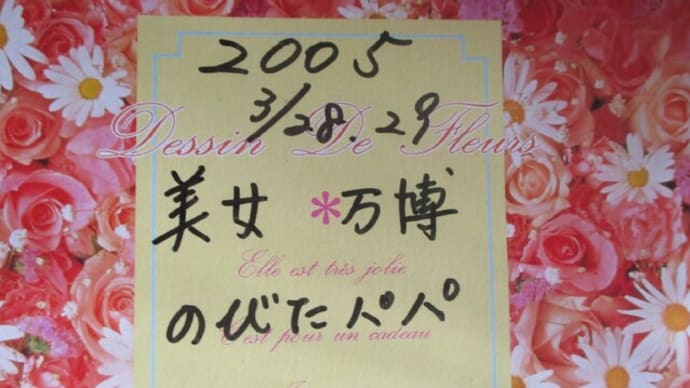 2005
3/28.29
Dessin De Fleurs
美女 *万博
Elle est très jolie
のびたパパ
C'est pour un cadeau